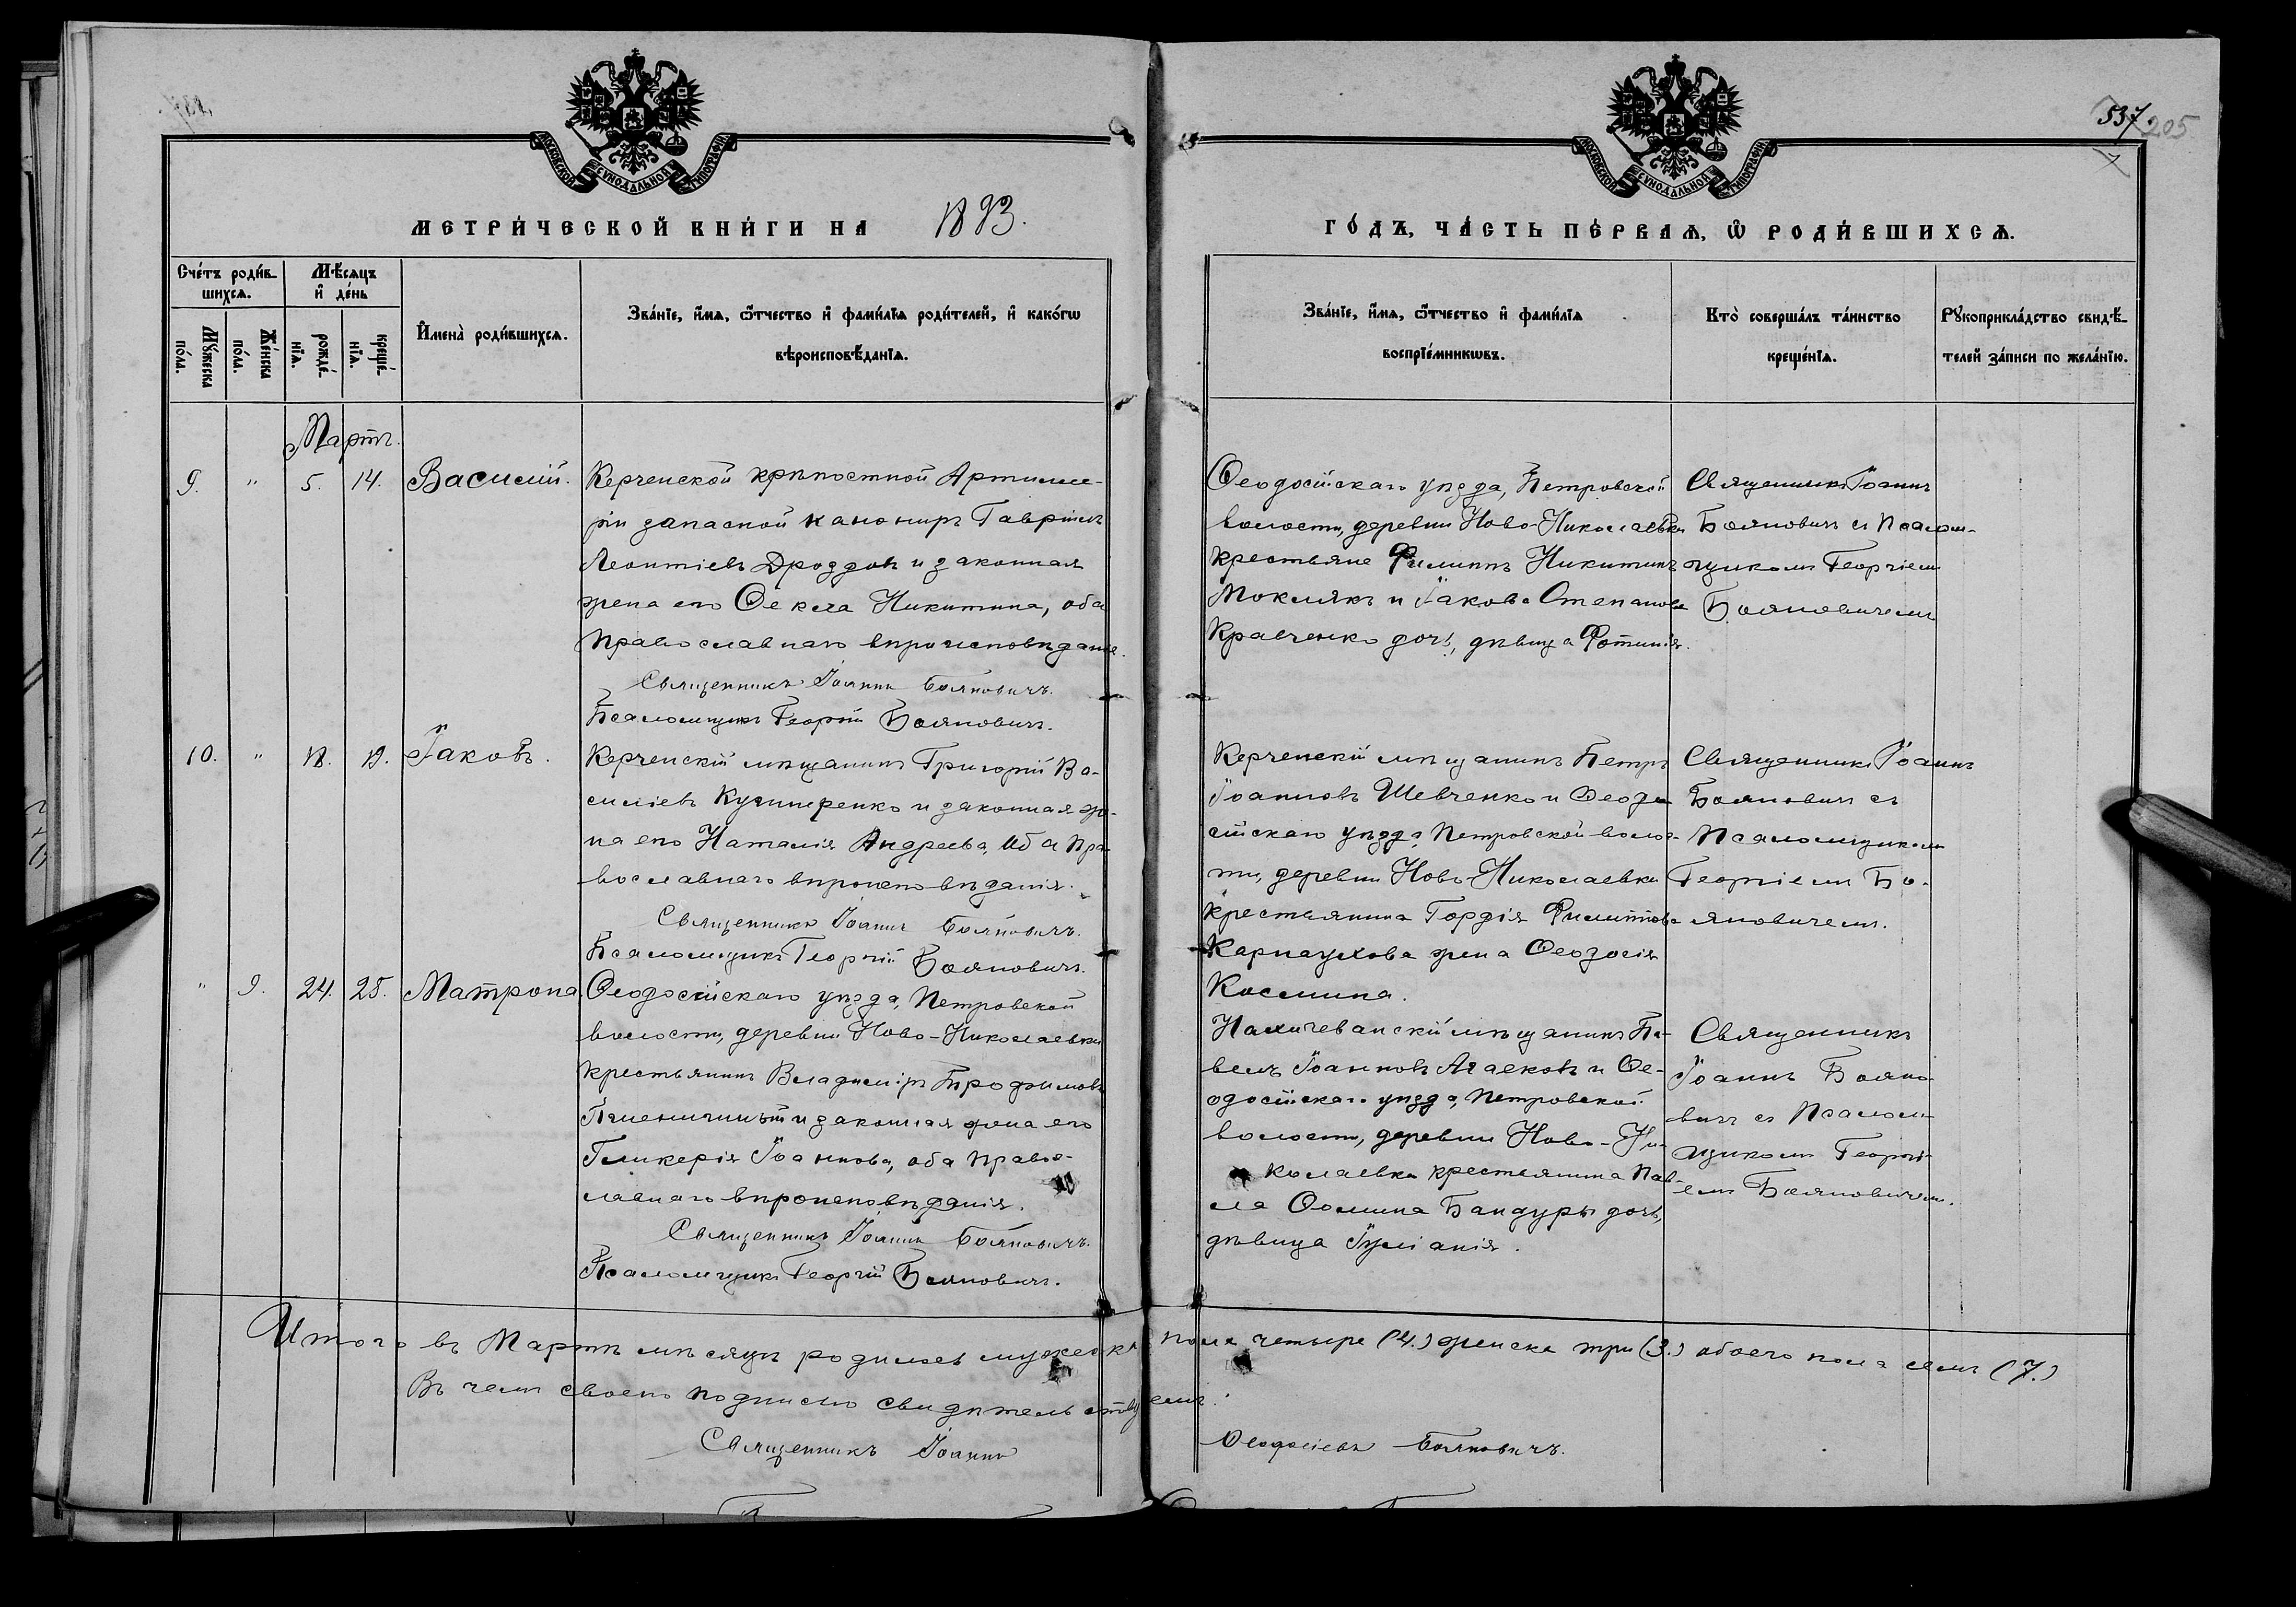 537
205
МОСКОВСКОЙ СУНОДАЛЬНОЙ ТИПОГРАФІИ
МОСКОВСКОЙ СУНОДАЛЬНОЙ ТИПОГРАФІИ
МЕТРИ́ЧЕСКОЙ КНИ́ГИ НА 1893.
ГО́ДЪ, ЧА́СТЬ ПЕ́РВАѦ, Ѽ РОДИ́ВШИХСѦ.
Сче́тъ роди́в-
шихсѧ.
Мꙋ́жеска по́ла.
Же́нска по́ла.
Мѣ́сѧцъ
и҆ де́нь
рожде́-нїѧ.
креще́-нїѧ.
И҆мена̀ роди́вшихсѧ.
Зва́нїе, и҆́мѧ, ѻ҆́тчество и҆ фами́лїѧ роди́телей, и҆ како́гѡ
вѣроисповѣ́данїѧ.
Зва́нїе, и҆́мѧ, ѻ҆́тчество и҆ фами́лїѧ
воспрїе́мникѡвъ.
Кто̀ соверша́лъ та́инство
креще́нїѧ.
Рꙋкоприкла́дство свидѣ́-
телей за́писи по жела́нїю.
Мартъ.
9. " 5. 14. Василій.
Керченской крѣпостной Артилле-
ріи запасной канониръ Гавріилъ
Леонтіевъ Дроздовъ и законная
жена его Ѳекла Никитина, оба
православнаго вѣроисповѣданія.
Священникъ Іоаннъ Бояновичъ.
Псаломщикъ Георгій Бояновичъ.
Ѳеодосійскаго уѣзда, Петровской
волости, деревни Ново-Николаевки
крестьяне Филиппъ Никитинъ
Моклякъ и Іакова Степанова
Кравченко дочь, дѣвица Фотинія.
Священникъ Іоаннъ
Бояновичъ съ Псалом-
щикомъ Георгіемъ
Бояновичемъ
10. " 18. 19. Іаковъ.
Керченскій мѣщанинъ Григорій Ва-
силіевъ Кушнеренко и законная же-
на его Наталія Андреева, оба пра-
вославнаго вѣроисповѣданія.
Священникъ Іоаннъ Бояновичъ.
Псаломщикъ Георгій Бояновичъ.
Керченскій мѣщанинъ Петръ
Іоанновъ Шевченко и Ѳеодо
сійскаго уѣзда, Петровской волос-
ти, деревни Ново-Николаевки
крестьянина Гордія Филиппова
Карпаухова жена Ѳеодосія
Космина.
Священникъ Іоаннъ
Бояновичъ съ
Псаломщикомъ
Георгіемъ Бо-
яновичемъ.
" 9. 24. 25. Матрона.
Ѳеодосійскаго уѣзда, Петровской
волости, деревни Ново-Николаевки
крестьянинъ Владиміръ Трофимовъ
Пшеничный и законная жена его
Гликерія Іоаннова, оба право-
славнаго вѣроисповѣданія.
Священникъ Іоаннъ Бояновичъ.
Псаломщикъ Георгій Бояновичъ.
Нахичеванскій мѣщанинъ Па-
велъ Іоанновъ и Ѳе-
одосійскаго уѣзда, Петровской
волости, деревни Ново-Ни-
колаевки крестьянина Пав-
ла Ѳомина Бандуры дочь,
дѣвица Іуліанія.
Священникъ
Іоаннъ Бояно-
вичъ съ Псалом-
щикомъ Георгі-
емъ Бояновичемъ.
Итого въ Мартѣ мѣсяцѣ родилось мужеска пола четыре (4.) женска три (3.) обоего пола семь (7.)
Въ чемъ своею подписью свидѣтельствуемъ:
Священникъ Іоаннъ Ѳеодосіевъ Бояновичъ.